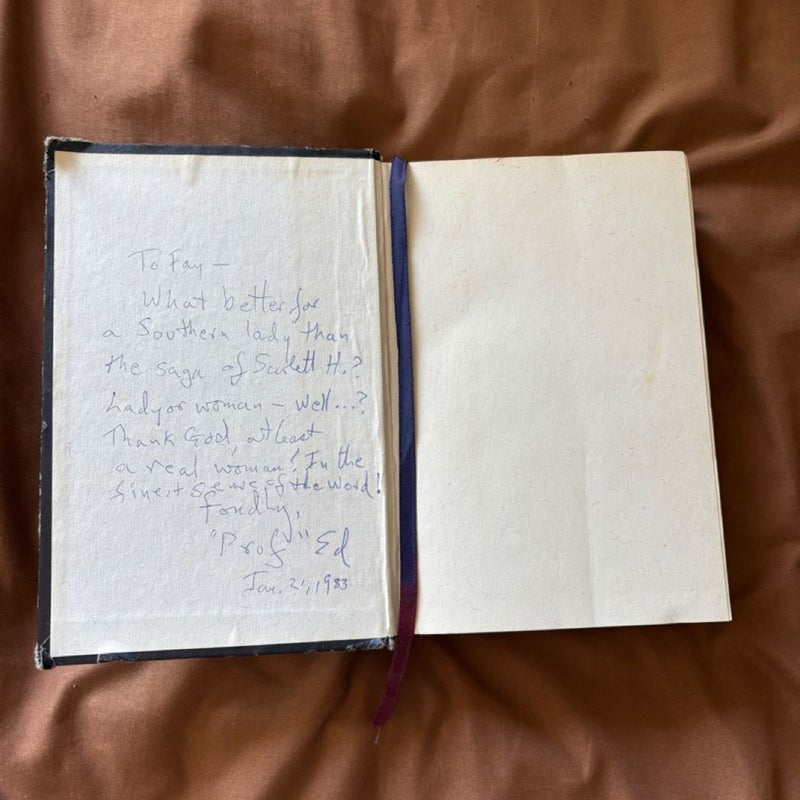 To Fay —
What better for
a Southern lady than
the saga of Scarlett H.?
Lady or woman — well...?
Thank God, at least
a real woman! In the
finest sense of the word!
Fondly,
"Prof" Ed
Jan. 21, 1983